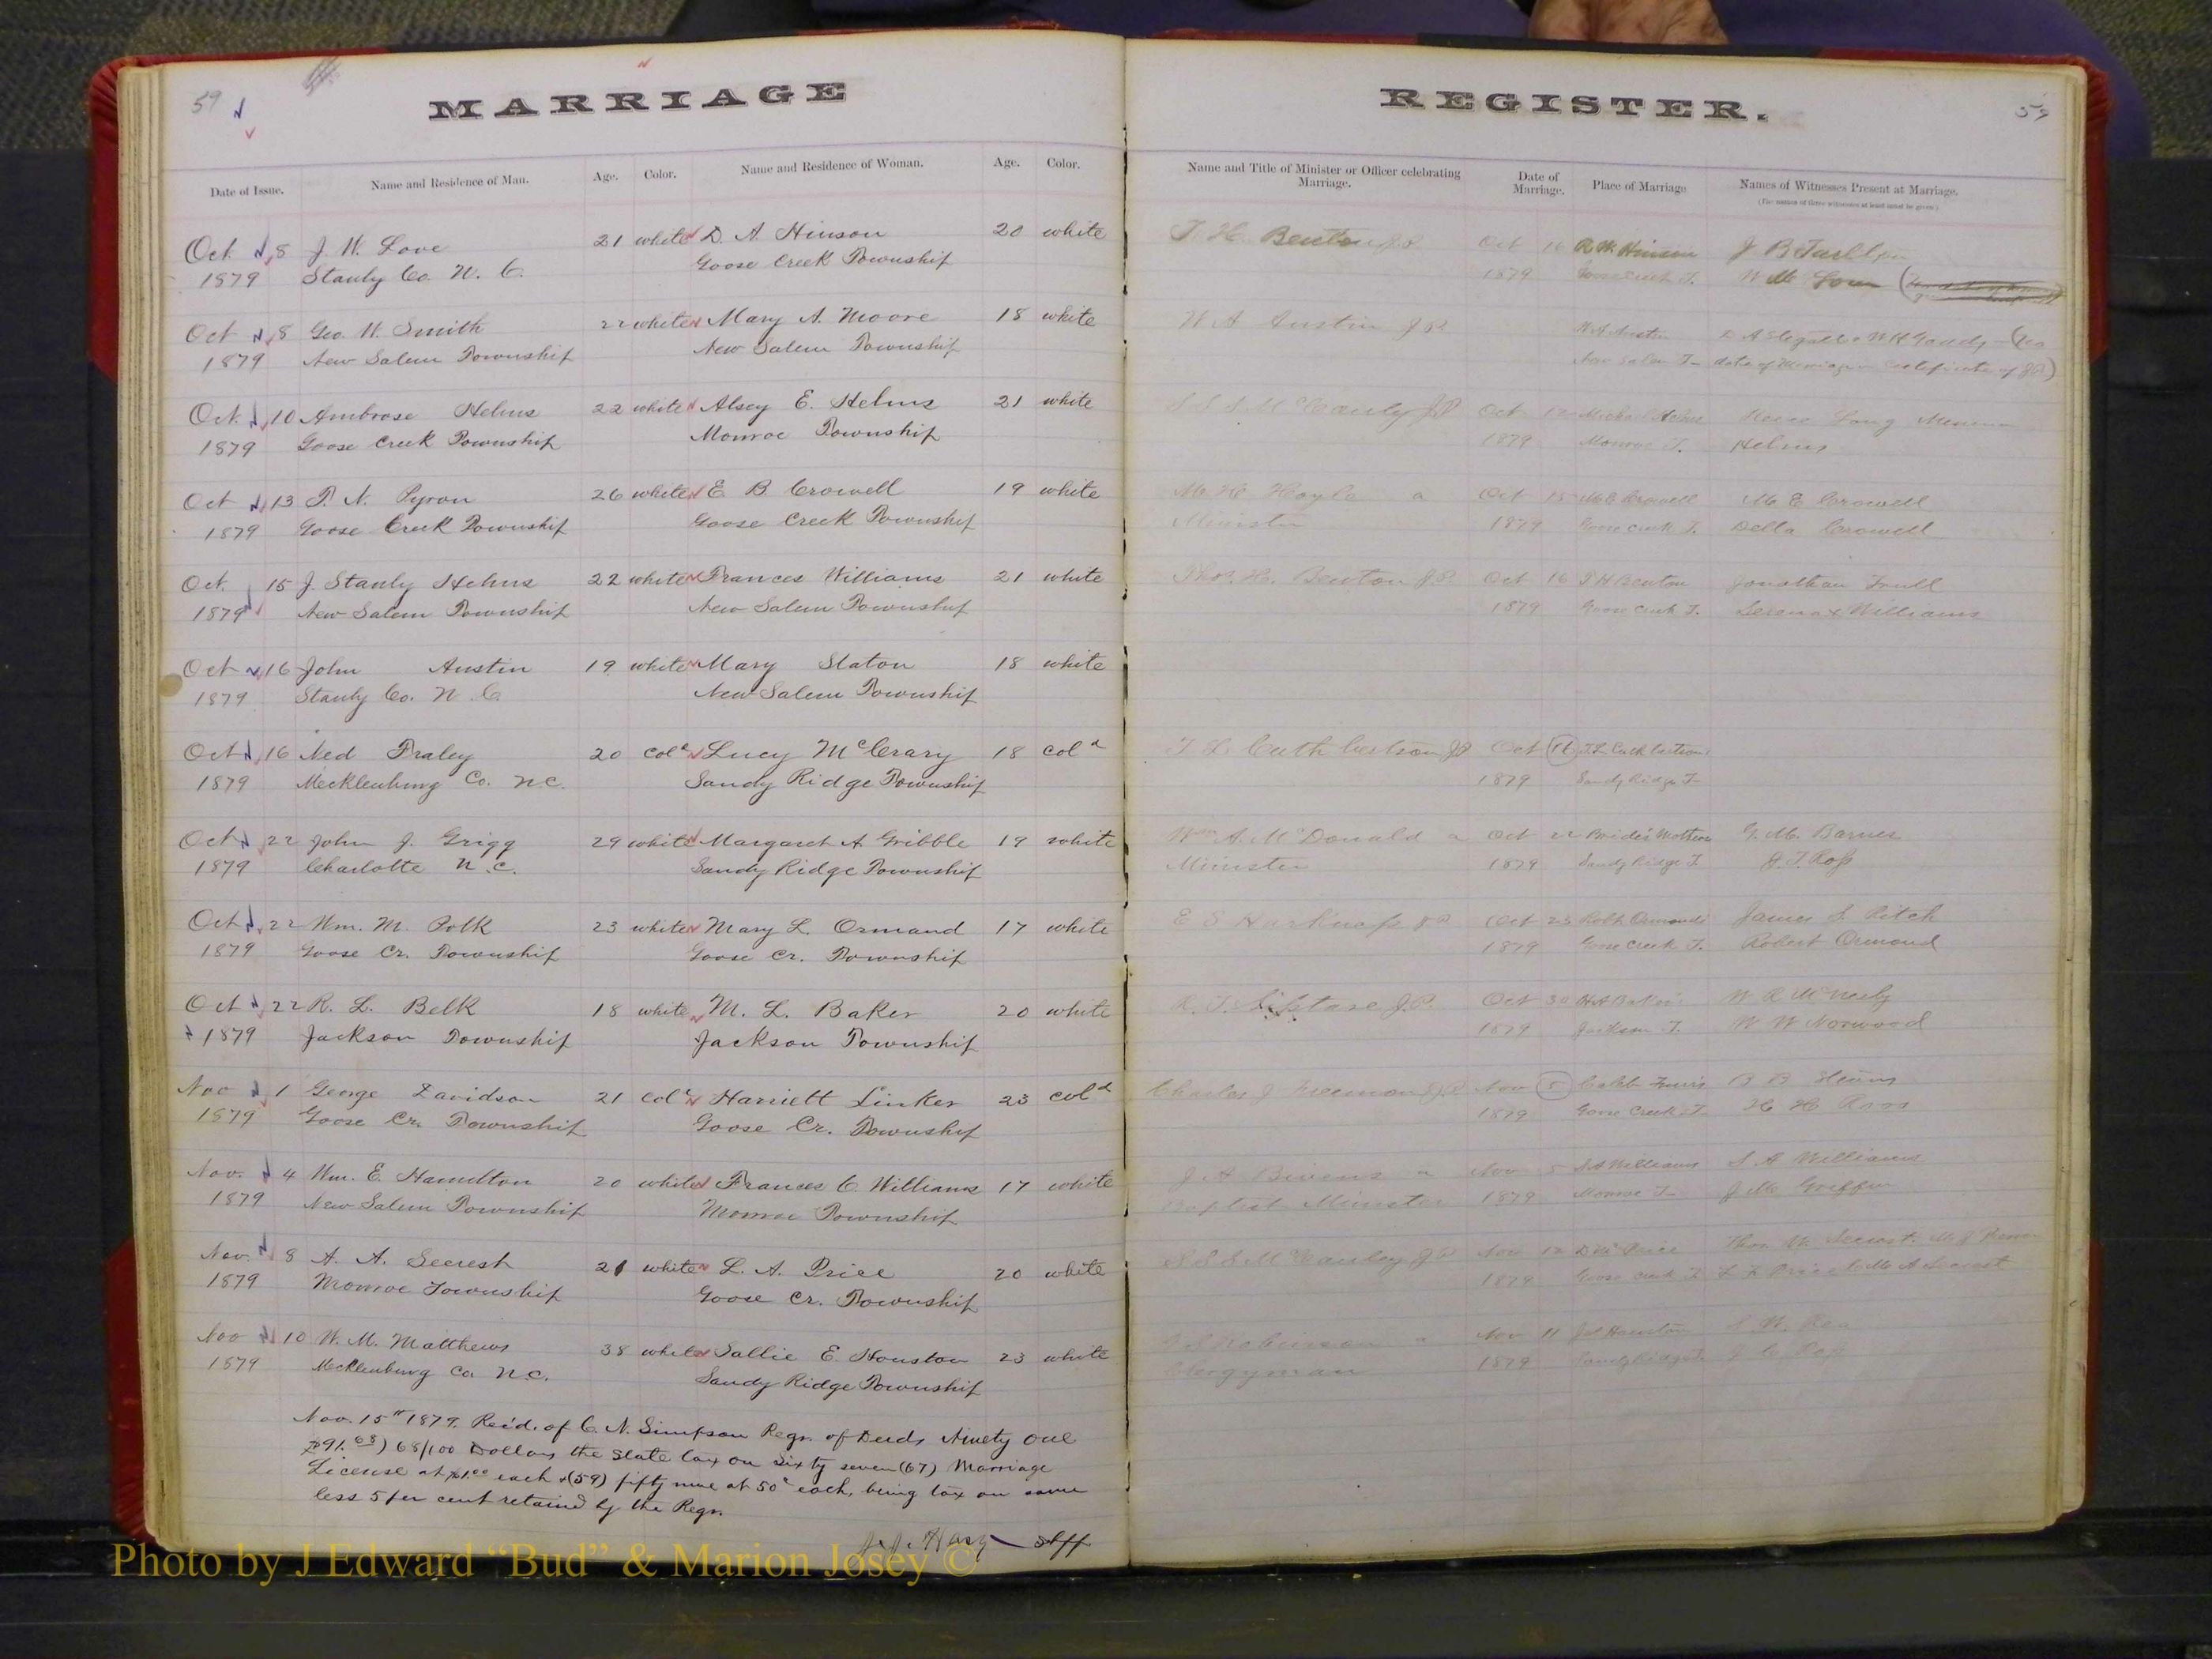 59
MARRIAGE
Date of Issue. Name and Residence of Man. Age. Color. Name and Residence of Woman. Age. Color.
Oct 8 J. W. Love 21 white D. A. Hinson 20 white
1879 Stanly Co. N. C. Goose Creek Township
Oct 8 Geo. W. Smith 22 white Mary A. Moore 18 white
1879 New Salem Township New Salem Township
Oct. 10 Ambrose Helms 22 white Alsey E. Helms 21 white
1879 Goose Creek Township Monroe Township
Oct 13 P. N. Pyron 26 white E B. Crowell 19 white
1879 Goose Creek Township Goose Creek Township
Oct. 15 J. Stanly Helms 22 white Frances Williams 21 white
1879 New Salem Township New Salem Township
Oct 16 John Austin 19 white Mary Staton 18 white
1879 Stanly Co. N. C New Salem Township
Oct 16 Ned Fraley 20 cold Lucy McCrary 18 cold
1879 Mecklenburg Co. N.C. Sandy Ridge Township
Oct 22 John J. Grigg 29 white Margaret A Gribble 19 white
1879 Charlotte N.C. Sandy Ridge Township
Oct 22 Wm. M. Polk 23 white Mary L. Ormand 17 white
1879 Goose Cr. Township Goose Cr. Township
Oct 22 R. L. Belk 18 white M. L. Baker 20 white
1879 Jackson Township Jackson Township
Nov 1 George Davidson 21 cold Harriett Linker 23 cold
1879 Goose Cr. Township Goose Cr. Township
Nov. 4 Wm. E. Hamilton 20 white Frances C. Williams 17 white
1879 New Salem Township Monroe Township
Nov. 8 A. A. Secrest 21 white L. A. Price 20 white
1879 Monroe Township Goose Cr. Township
Nov 10 W. M. Matthews 38 white Sallie E. Houston 23 white
1879 Mecklenburg Co N.C. Sandy Ridge Township
Nov. 15th 1879. Recd. of C. N. Simpson Regr. of Deeds Ninety one
$91.68) 68/100 Dollars the State tax on Sixty seven (67) Marriage
License at $1.00 each & (59) fifty nine at 50c each, being tax on same
less 5 per cent retained by the Regr.
REGISTER.
59
Name and Title of Minister or Officer celebrating Marriage. Date of Marriage. Place of Marriage Names of Witnesses Present at Marriage.
(The names of three witnesses at least must be given)
T. H. Benton J.P. Oct 16 R W Hinson
1879 Goose Creek T.
W A Austin J.P. W A Austin
New Salem T- date of Marriage certificate of JP)
S S S McCauly J.P Oct 12 Michael Helms
1879 Monroe T. Helms
M. H. Hoyle a Oct 15 M E Crowell M E Crowell
Minister 1879 Goose Creek T. Della Crowell
Thos. H. Benton J.P. Oct 16 T H Benton Jonathan Trull
1879 Goose Creek T. Williams
T. L. Cuthbertson J.P Oct 16 T.L. Cuthbertson
1879 Sandy Ridge T-
Wm A. McDonald a Oct 22 Bride's Mothers G. M. Barnes
Minister 1879 Sandy Ridge T J. T. Ross
E S Harkness J.P. Oct 23 Robt Ormonds James S Ritch
1879 Goose Creek T. Robert Ormond
R. T. Sistare J.P. Oct 30 H A Baker W R McNeely
1879 Jackson T. W W Norwood
Charles J Freeman J.P. Nov 5 B B
1879 Goose Creek T H H Ross
J. A Bivens a Nov 5 S A Williams S A Williams
Baptist Minister 1879 Monroe T- J M Griffin
S S S McCauley J.P Nov 12 D W Price
1879 Goose Creek T
J S Robinson a Nov 11 Jas Houston S. W. Rea
Clergyman 1879 Sandy Ridge T. Ross
Photo by J Edward “Bud” & Marion Josey ©